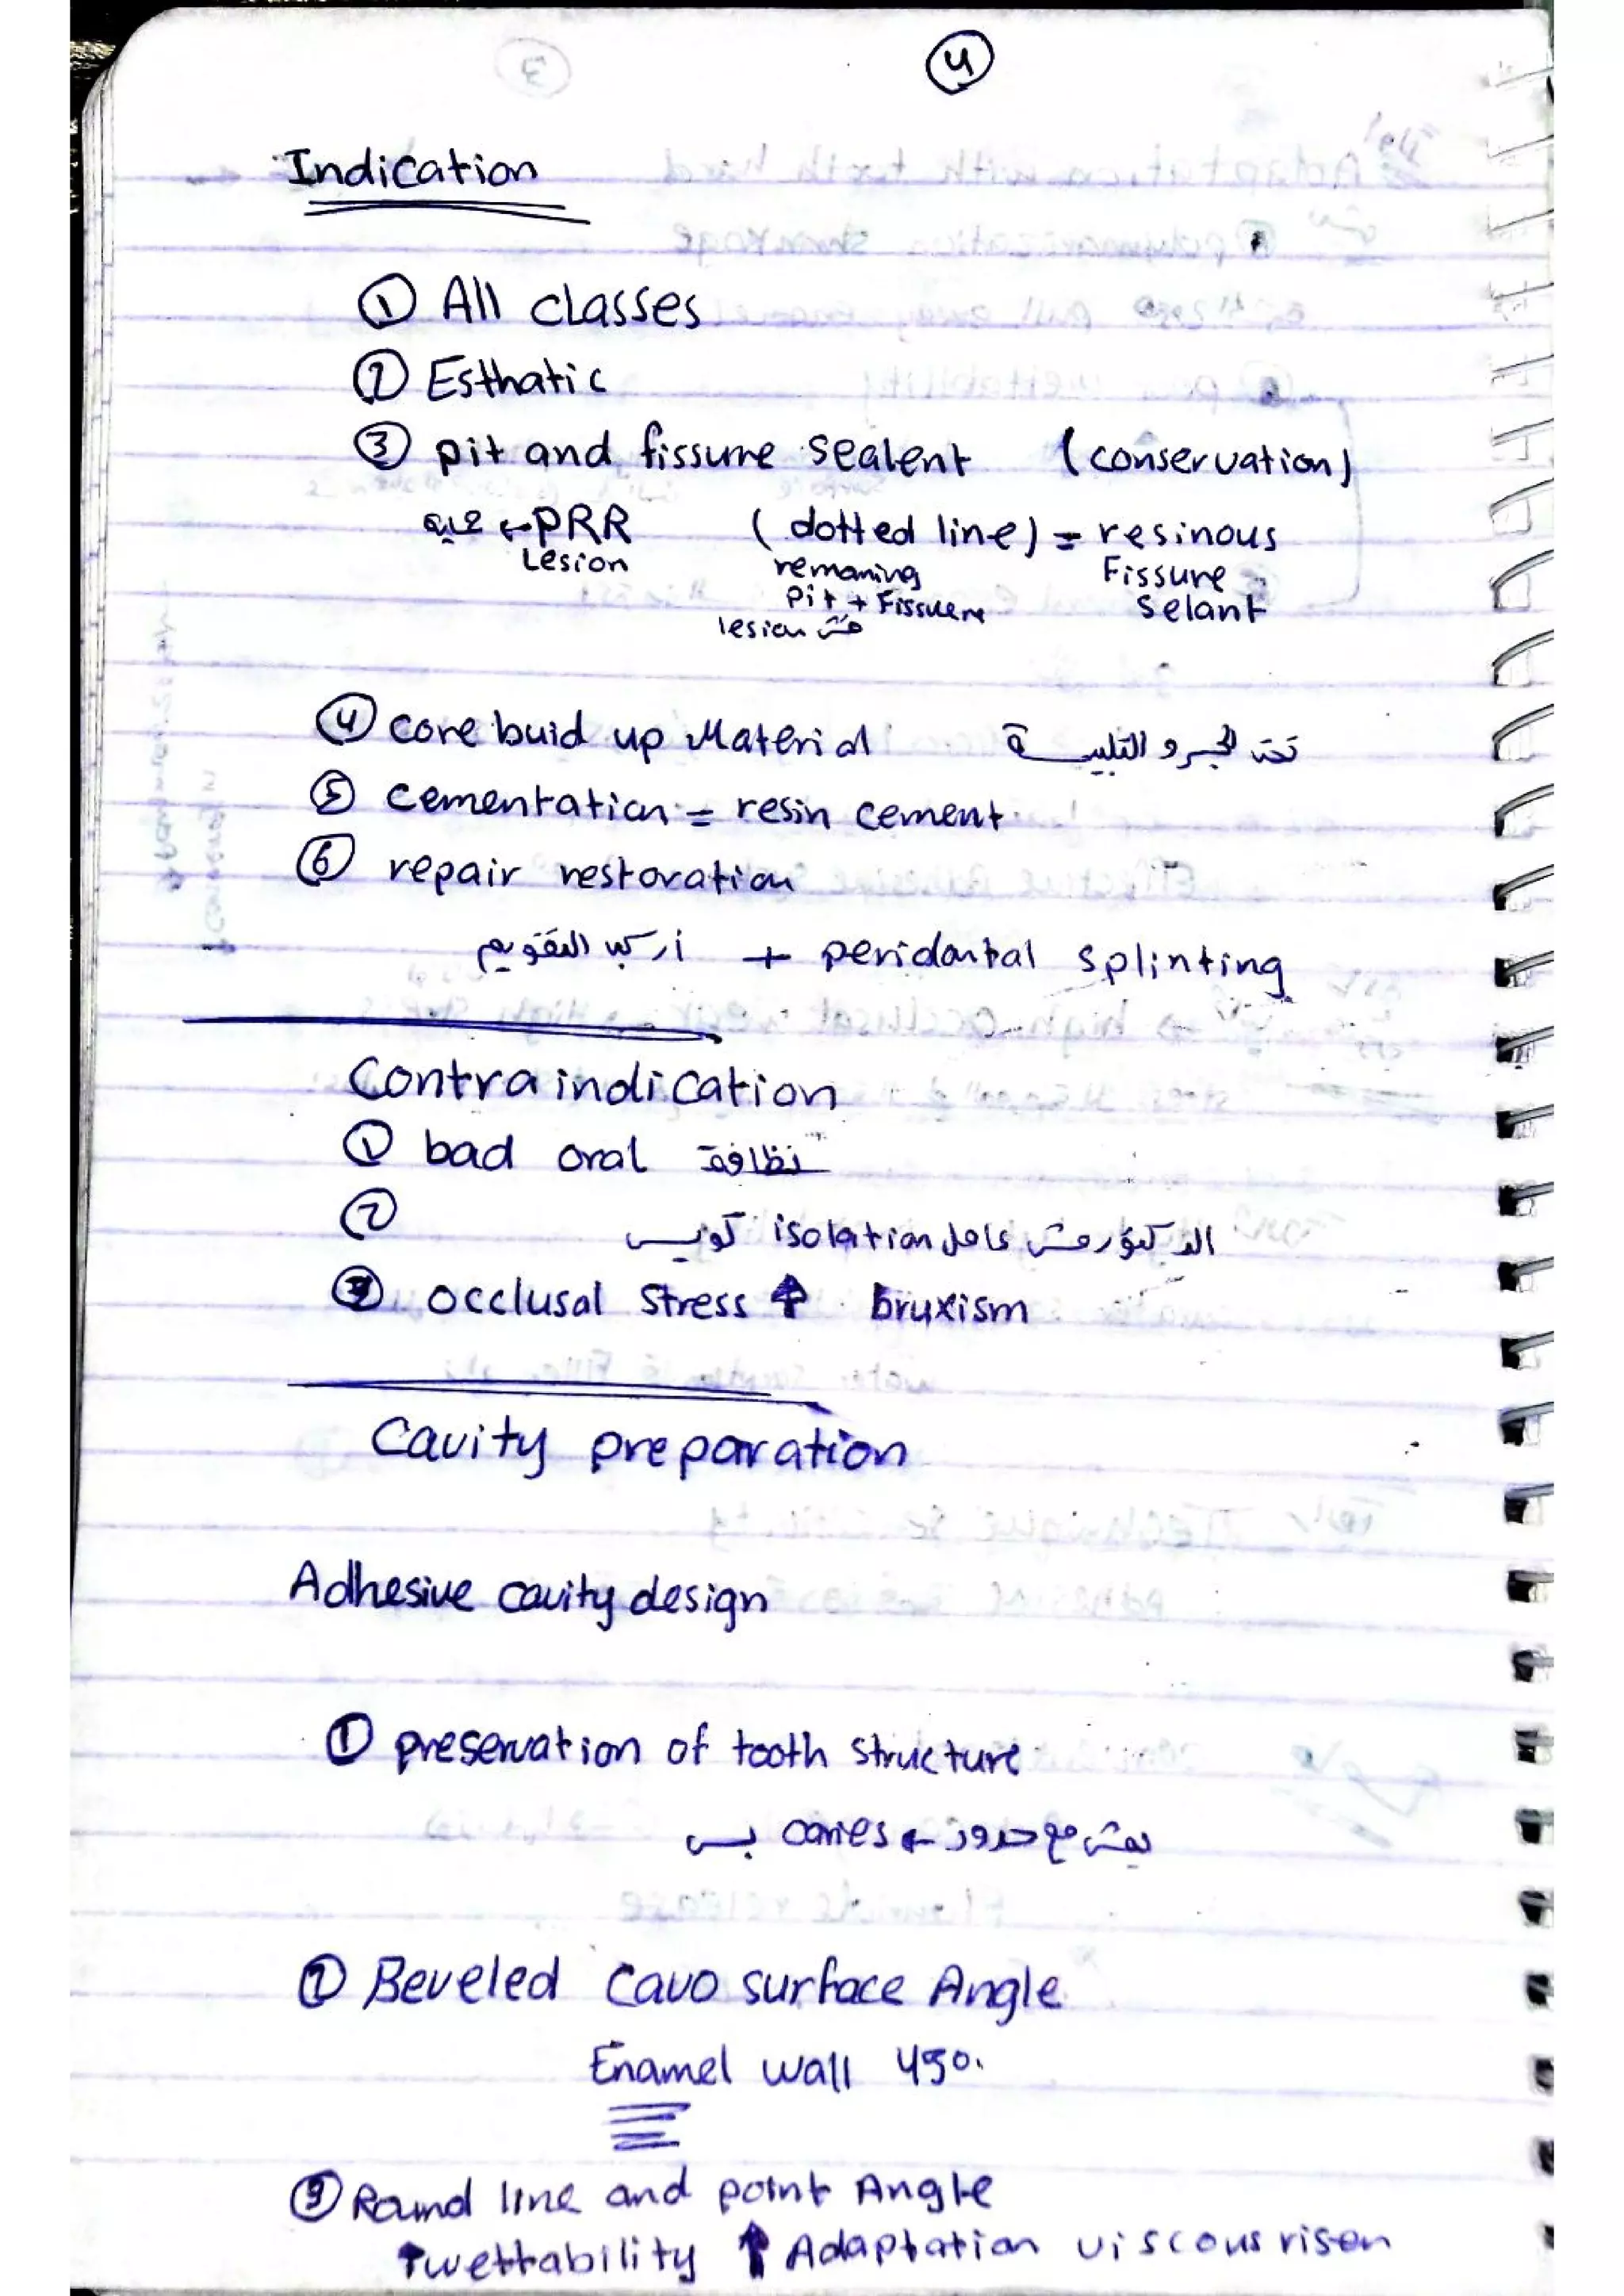 4
Indication
① All classes
② Esthatic
③ pit and fissure Sealent (conservation)
فيه ← PRR (dotted line) = resinous
Lesion remaning Fissure
Pit + Fissuere Selant
مش lesion
④ core buid up Material تحت الجسر و التلبيسة
⑤ cementation = resin cement
⑥ repair restoration
أركب التقويم + peridontal splinting
Contra indication
① bad oral نظافة
② الدكتور مش عامل isolation كويس
③ occlusal stress ↑ bruxism
Cavity preparation
Adhesive cavity design
① preservation of tooth structure
بمشى مع حدود ← caries بس
② Beveled cavo surface Angle
Enamel wall 450.
③ Round line and point Angle
↑wettability ↑ Adaptation viscous risen